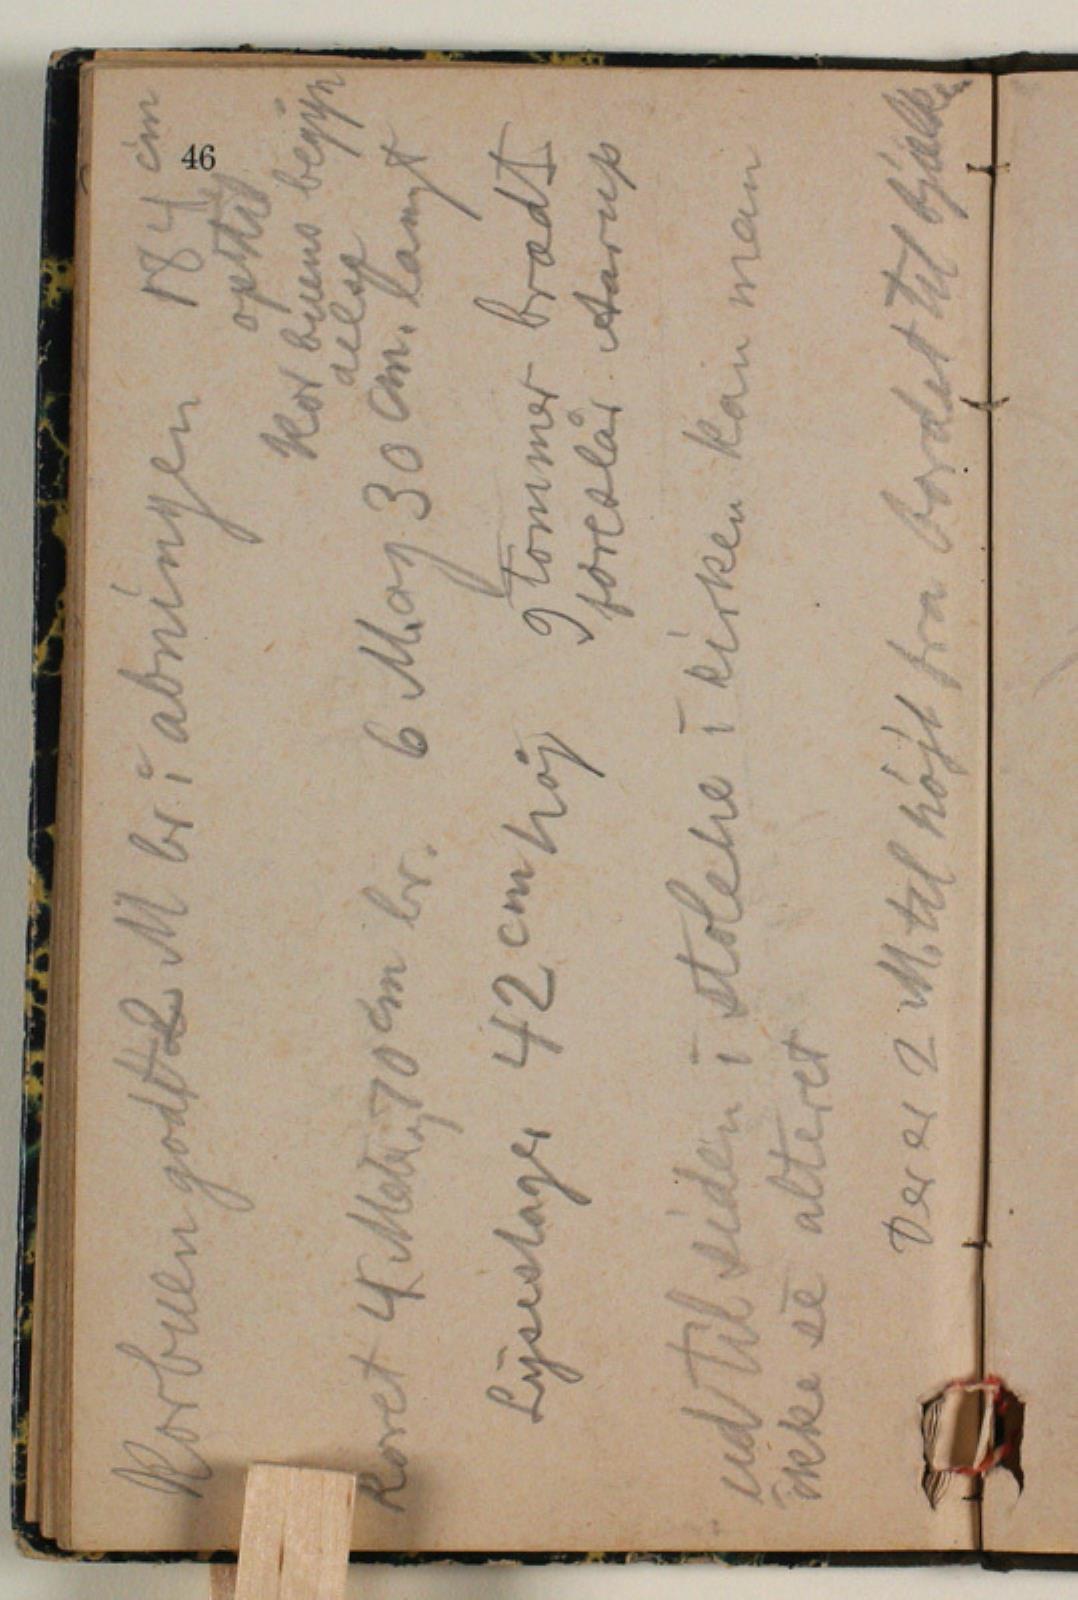 46
Korbuen godt 2 M br i åbningen 184 cm
optil
Korbuens begyn
delse
Koret 4 Met og 70 cm br. 6 M. og 30 cm. langt
Lysestager 42 cm høj 9 tommer bredt
foreslår Aarup
ud til siden i stolene i kirken kan man
ikke se alteret
Der er 2 M. til højt fra bordet til bjælken